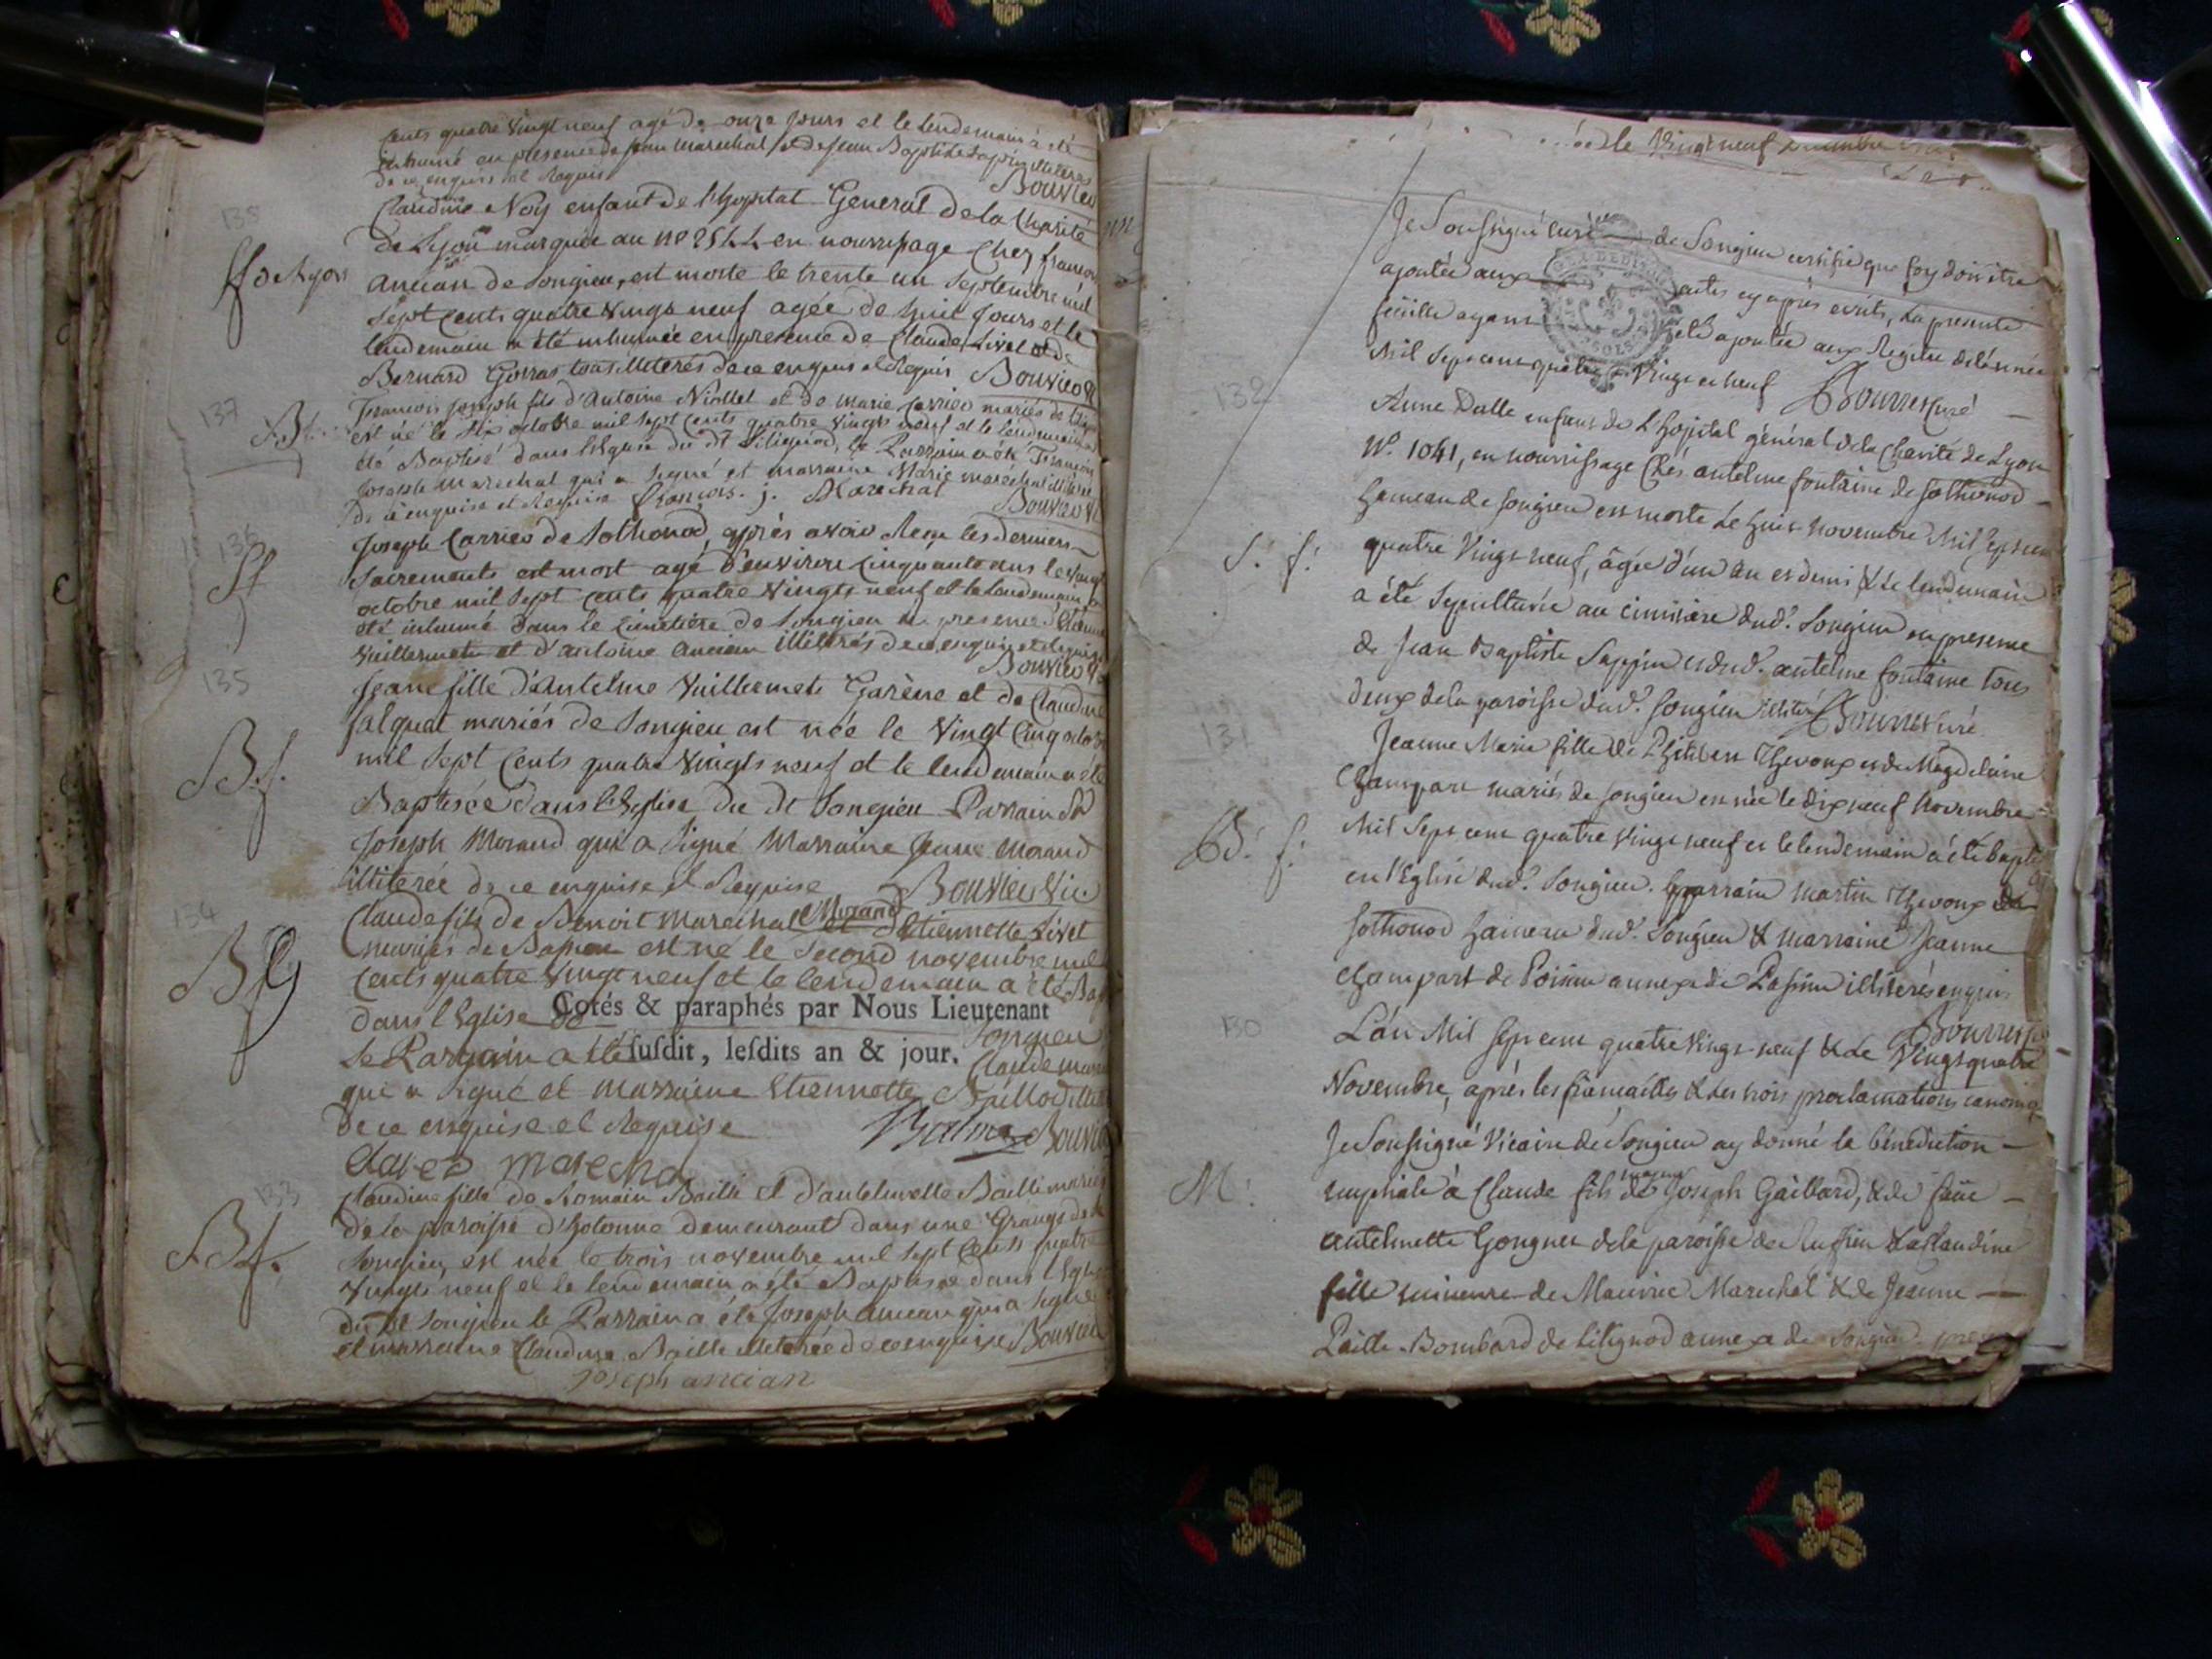 cents quatre vingt neuf agé de onze jours et le lendemain a été
inhumé en presence de jean marechal et de jean Baptiste Sapin illiterés
de ce enquis et Requis
Bouvier
138
Claudine Noy enfant de l'hopital General de la Charité
de Lyon marquée au no en nourrissage chez francois
ancian de Songieu, est morte le trente un Septembre mil
Sept cents quatre vingt neuf agée de huit jours et le
lendemain a été inhumée en presence de Claude Livet et de
Bernard Gorras tous illiterés de ce enquis et Requis Bouvier
137
B
François joseph fils d'Antoine Niollet et de marie Carrier mariés de
est né le octobre mil sept cents quatre vingt neuf et le lendemain a
été Baptisé dans l'Eglise du dt Litignod, le Parrain a été François
joseph marechal qui a signé et marraine Marie marechal illiterée
de ce enquise et Requise François. j. Marechal Bouvier
136
Joseph Carrier de Sothonod, après avoir Recu les derniers
Sacrements est mort agé d'environ Cinquante ans le vingt
octobre mil Sept cents quatre vingts neuf et le lendemain a
été inhumé dans le Cimetière de Songieu en presence
Vuillermet et d'antoine ancian illiterés de ce enquis et Requis
Bouvier
135
B.f.
Jeane fille d'Antelme Vuillermet Garène et de Claudine
falquet mariés de Songieu est née le vingt cinq octobre
mil Sept Cents quatre vingts neuf et le lendemain a été
Baptisée dans l'Eglise du dt Songieu Parrain
Joseph Morand qui a Signé Marraine Jeane morand
illiterée de ce enquise et Requise Bouvier Vic
Morand
134
Claude fils de Benoit Marechal et d'Etiennette Livet
mariés de est né le Second novembre mil
cents quatre vingt neuf et le lendemain a été
dans l'Eglise
Cotés & paraphés par Nous Lieutenant
Songieu
le Parrain a été
susdit, lesdits an & jour.
Claude
qui a Signé et marraine Etiennette
de ce enquise et Requise Balme Bouvier
133
B f.
Claudine fille de Romain Baille et d'antelmette Baille mariés
de la paroisse d'hotonne demeurant dans une Grange de
Songieu, est née le trois novembre mil sept cents quatre
vingts neuf et le lendemain a été Baptisée dans l'Eglise
du dt Songieu le Parrain a été Joseph ancian qui a signé
et marraine Claudine Baille illiterée de ce enquise Bouvier
joseph ancian
le vingt neuf
Je Soussigné Curé de Songieu certifie que foy doit être
ajoutée aux actes cy après écrits, la presente
feüille ayant été ajoutée aux Registre de l'année
Mil Sept cent quatre Vingt et neuf Bourres Curé
132
S. f.
Anne Dalle enfant de L'hopital général de la Charité de Lyon
No. 1041, en nourrissage chés antelme fontaine de Sothonod
hameau de Songieu est morte le huit novembre Mil Sept cent
quatre Vingt neuf, âgée d'un an et demi & le lendemain
a été Sepulturée au cimitiere dud. Songieu en presence
de Jean Baptiste Sappin et dud. antelme fontaine tous
deux de la paroisse dud. Songieu Bourres Curé
131
B. f.
Jeanne Marie fille de Philibert Thevoux et de Magdelaine
Champart mariés de Songieu est née le dix neuf Novembre
Mil Sept cent quatre vingt neuf et le lendemain a été bapt.
en l'Eglise dud. Songieu. parrain Martin Thevoux de
Sothonod hameau dud. Songieu & marraine Jeanne
Champart de Poisieu annexe de Passin illiterés enquis
Bourres
130
M.
L'an Mil Sept cent quatre Vingt neuf & le Vingt quatre
Novembre, après les fiançailles & les trois proclamations
Je Soussigné Vicaire de Songieu ay donné la bénédiction
nuptiale à Claude fils de Joseph Gaillard, & de
antelmette Gonguet de la paroisse de Ruffieu & a Claudine
fille mineure de Maurice Marechal & de Jeanne
Paille-Bombard de Litignod annexe de Songieu